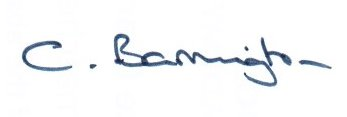 C. Barrington